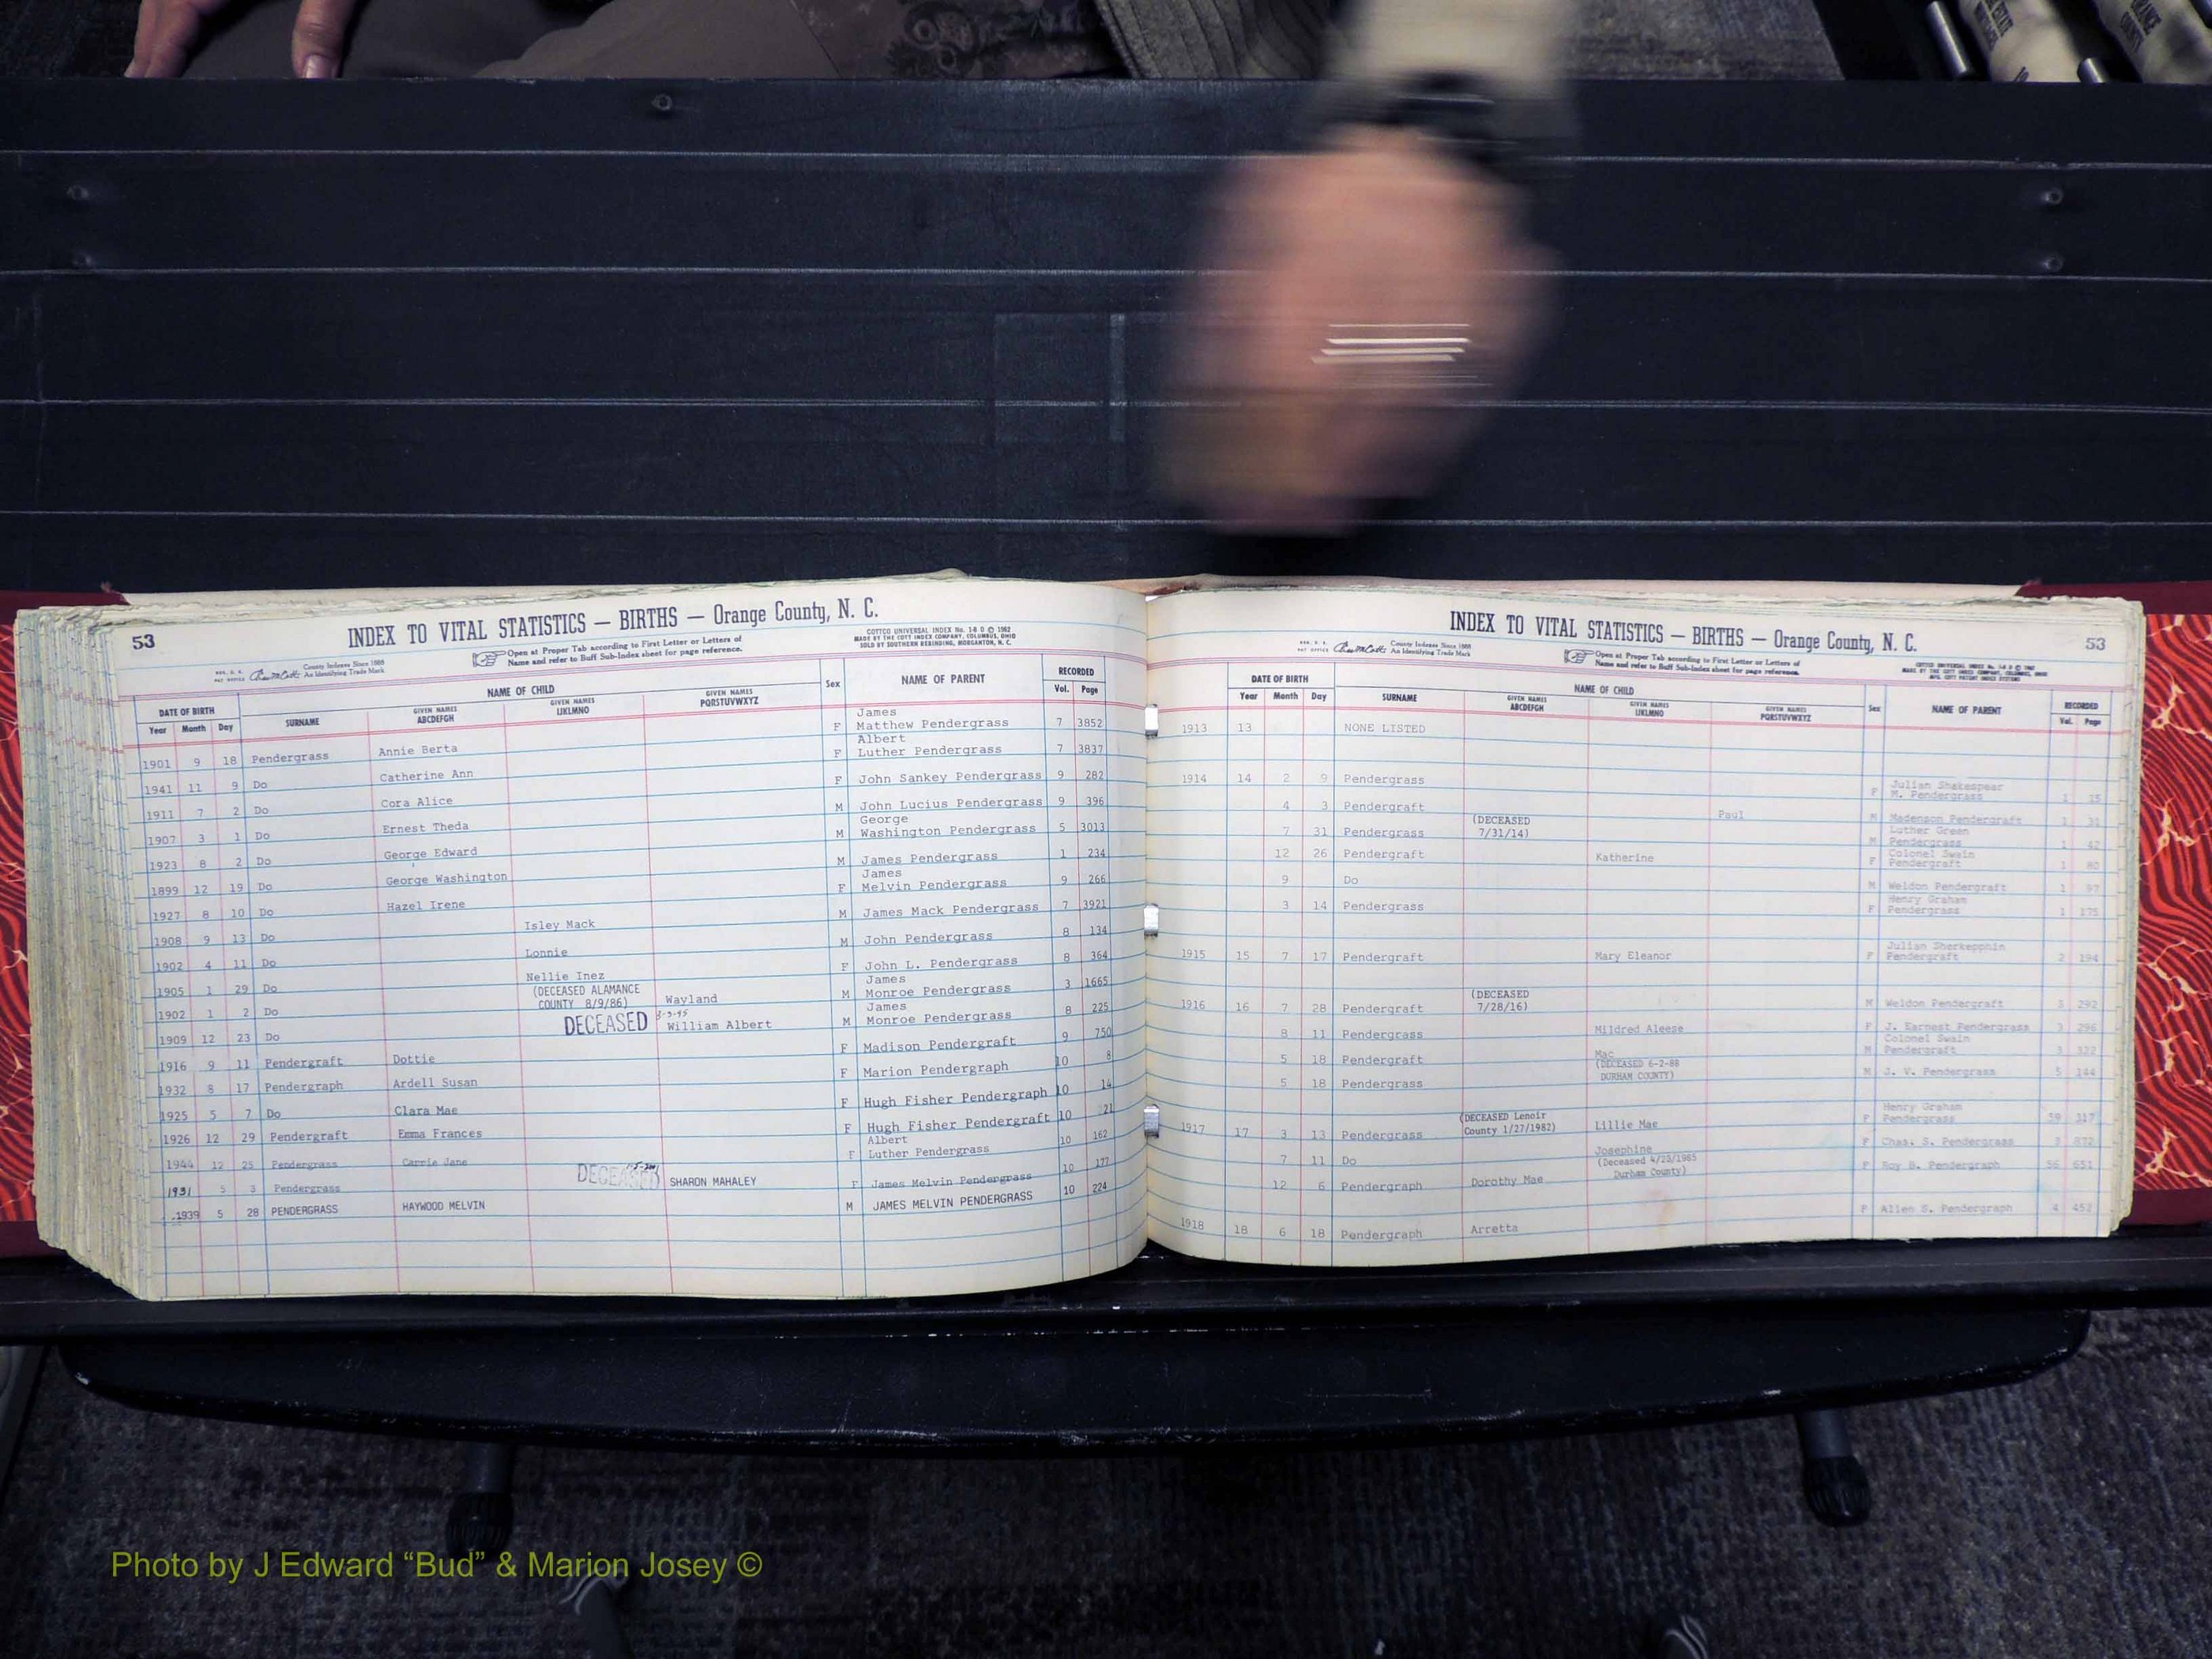 53
INDEX TO VITAL STATISTICS — BIRTHS — Orange County, N. C.
COTTCO UNIVERSAL INDEX No. 1-B D © 1962
MADE BY THE COTT INDEX COMPANY, COLUMBUS, OHIO
SOLD BY SOUTHERN REBINDING, MORGANTON, N. C.
County Indexes Since 1888
An Identifying Trade Mark
Open at Proper Tab according to First Letter or Letters of
Name and refer to Buff Sub-Index sheet for page reference.
DATE OF BIRTH NAME OF CHILD Sex NAME OF PARENT RECORDED
Year Month Day SURNAME GIVEN NAMES ABCDEFGH GIVEN NAMES IJKLMNO GIVEN NAMES PQRSTUVWXYZ Vol. Page
1901 9 18 Pendergrass Annie Berta F James Matthew Pendergrass 7 3852
1941 11 9 Do Catherine Ann F Albert Luther Pendergrass 7 3837
1911 7 2 Do Cora Alice F John Sankey Pendergrass 9 282
1907 3 1 Do Ernest Theda M John Lucius Pendergrass 9 396
1923 8 2 Do George Edward M George Washington Pendergrass 5 3013
1899 12 19 Do George Washington M James Pendergrass 1 234
1927 8 10 Do Hazel Irene F James Melvin Pendergrass 9 266
1908 9 13 Do Isley Mack M James Mack Pendergrass 7 3921
1902 4 11 Do Lonnie M John Pendergrass 8 134
1905 1 29 Do Nellie Inez (DECEASED ALAMANCE COUNTY 8/9/86) F John L. Pendergrass 8 364
1902 1 2 Do Wayland M James Monroe Pendergrass 3 1665
1909 12 23 Do DECEASED 3-3-95 William Albert M James Monroe Pendergrass 8 225
1916 9 11 Pendergraft Dottie F Madison Pendergraft 9 750
1932 8 17 Pendergraph Ardell Susan F Marion Pendergraph 10 8
1925 5 7 Do Clara Mae F Hugh Fisher Pendergraph 10 14
1926 12 29 Pendergraft Emma Frances F Hugh Fisher Pendergraft 10 21
1944 12 25 Pendergrass Carrie Jane F Albert Luther Pendergrass 10 162
1931 5 3 Pendergrass DECEASED SHARON MAHALEY F James Melvin Pendergrass 10 177
1939 5 28 PENDERGRASS HAYWOOD MELVIN M JAMES MELVIN PENDERGRASS 10 224
INDEX TO VITAL STATISTICS — BIRTHS — Orange County, N. C.
53
County Indexes Since 1888
An Identifying Trade Mark
Open at Proper Tab according to First Letter or Letters of
Name and refer to Buff Sub-Index sheet for page reference.
DATE OF BIRTH NAME OF CHILD Sex NAME OF PARENT RECORDED
Year Month Day SURNAME GIVEN NAMES ABCDEFGH GIVEN NAMES IJKLMNO GIVEN NAMES PQRSTUVWXYZ Vol. Page
1913 13 NONE LISTED
1914 14 2 9 Pendergrass F Julian Shakespear M. Pendergrass 1 15
4 3 Pendergraft Paul M Madenson Pendergraft 1 31
7 31 Pendergrass (DECEASED 7/31/14) M Luther Green Pendergrass 1 42
12 26 Pendergraft Katherine F Colonel Swain Pendergraft 1 80
9 Do M Weldon Pendergraft 1 97
3 14 Pendergrass F Henry Graham Pendergrass 1 175
1915 15 7 17 Pendergraft Mary Eleanor F Julian Pendergraft 2 194
1916 16 7 28 Pendergraft (DECEASED 7/28/16) M Weldon Pendergraft 3 292
8 11 Pendergrass Mildred Aleese F J. Earnest Pendergrass 3 296
5 18 Pendergraft Mac (DECEASED 6-2-88 DURHAM COUNTY) M Colonel Swain Pendergraft 3 322
5 18 Pendergrass M J. V. Pendergrass 5 144
1917 17 3 13 Pendergrass (DECEASED Lenoir County 1/27/1982) Lillie Mae F Henry Graham Pendergrass 59 317
7 11 Do Josephine (Deceased 4/23/1985 Durham County) F Chas. S. Pendergrass 3 872
12 6 Pendergraph Dorothy Mae F Roy B. Pendergraph 56 651
1918 18 6 18 Pendergraph Arretta F Allen S. Pendergraph 4 452
Photo by J Edward “Bud” & Marion Josey ©